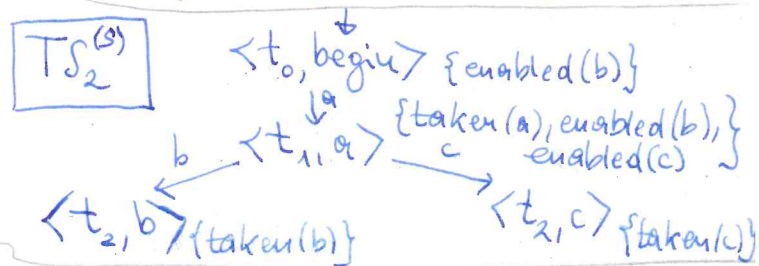 TS₂⁽ˢ⁾
<t₀, begin> {enabled(b)}
a
<t₁, a> {taken(a), enabled(b), enabled(c)}
b c
<t₂, b> {taken(b)} <t₂, c> {taken(c)}